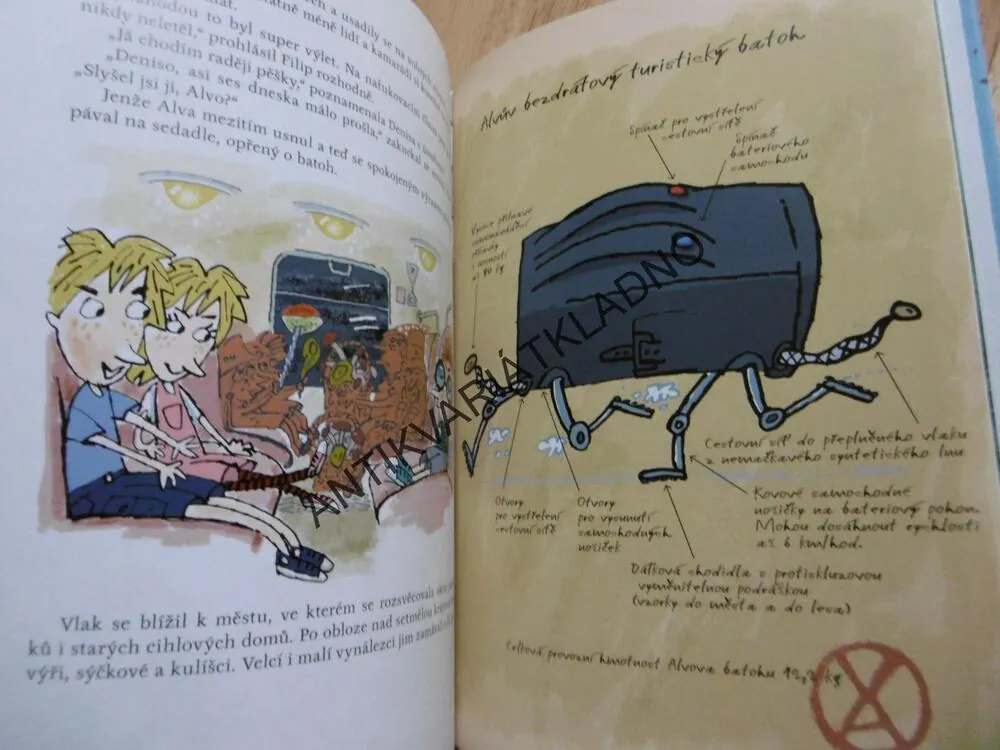 to byl super výlet. Na nafukovacím
nikdy neletěl,“ prohlásil Filip rozhodně.
„Já chodím raději pěšky,“ poznamenala Denisa
„Deniso, asi ses dneska málo prošla,“ zakuckal se
„Slyšel jsi ji, Alvo?“
Jenže Alva mezitím usnul a teď se spokojeným
pával na sedadle, opřený o batoh.
Vlak se blížil k městu, ve kterém se rozsvěcovala
ků i starých cihlových domů. Po obloze nad setmělou
výři, sýčkové a kulíšci. Velcí i malí vynálezci jim
Alvův bezdrátový turistický batoh
Spínač pro vystřelení
cestovní sítě
Spínač
bateriového
samochodu
Vysoce přilnavé
až 80 kg
Cestovní síť do přeplněného vlaku
z nemačkavého syntetického lnu
Otvory
pro vystřelení
cestovní sítě
Otvory
pro vysunutí
samochodných
nožiček
Kovové samochodné
nožičky na bateriový pohon.
Mohou dosáhnout rychlosti
až 6 km/hod.
Dátková chodidla s protiskluzovou
vyměnitelnou podrážkou
(vzorky do města a do lesa)
Celková provozní hmotnost Alvova batohu 92,2 kg
ANTIKVARIÁTKLADNO